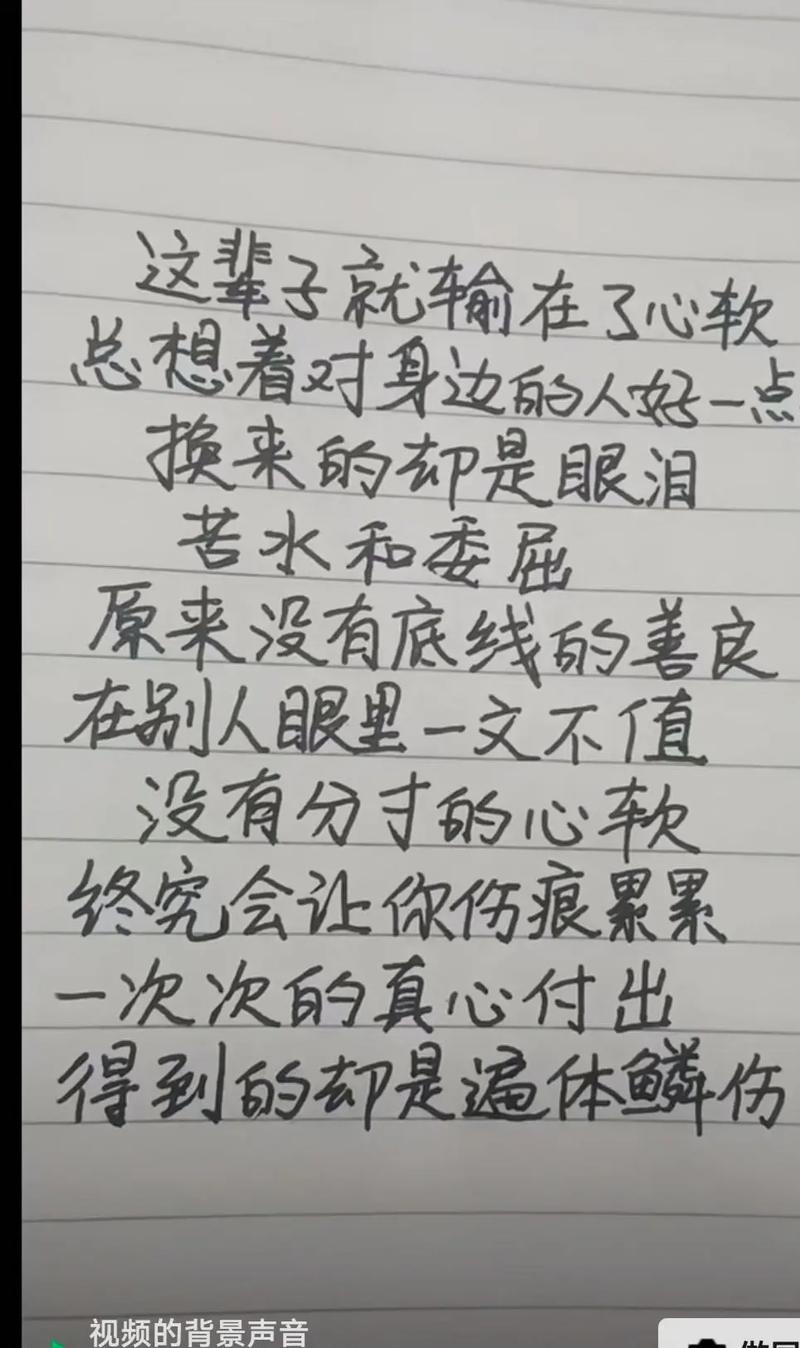 这辈子就输在了心软
总想着对身边的人好一点
换来的却是眼泪
苦水和委屈
原来没有底线的善良
在别人眼里一文不值
没有分寸的心软
终究会让你伤痕累累
一次次的真心付出
得到的却是遍体鳞伤
视频的背景声音
做同